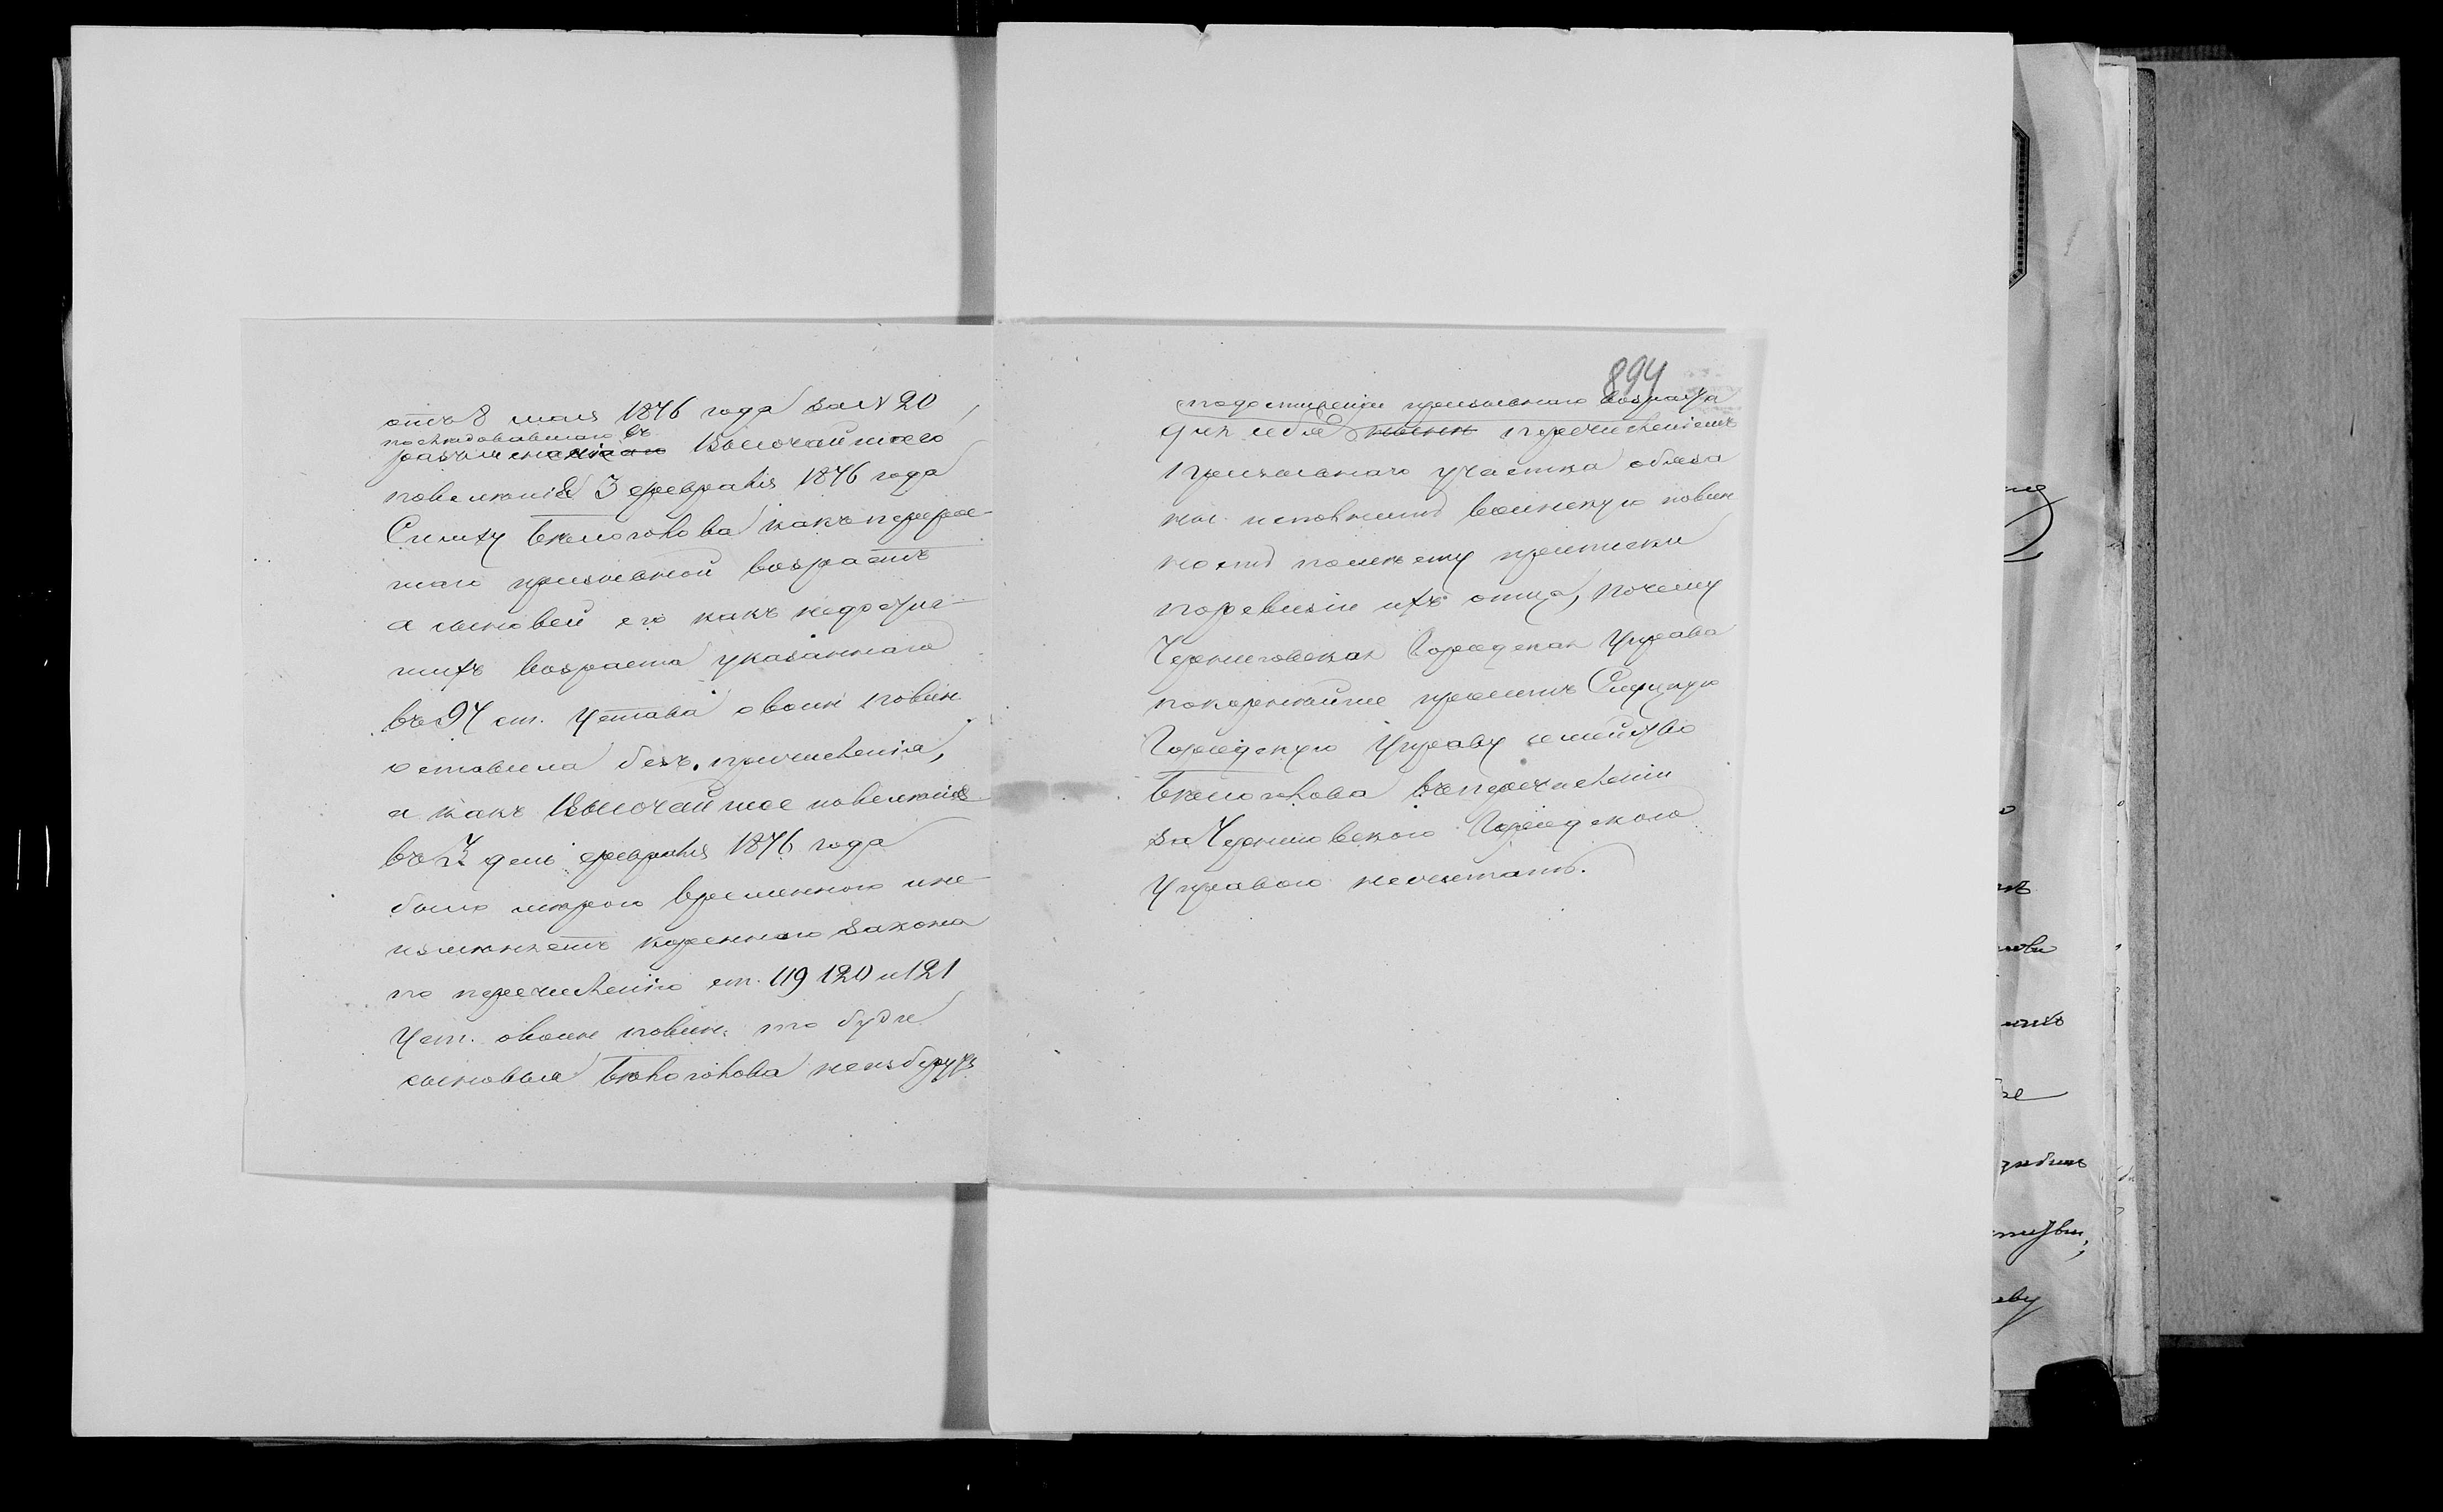 отъ 8 мая 1876 года за № 20,
последовавшаго въ
разъясненіе Высочайшаго
повеленія 3 февраля 1876 года
Симху Белоголова какъ перерос-
шаго призывной возрастъ
а сыновей его какъ недостиг-
шихъ возраста указаннаго
въ 97 ст. Устава о воин повин
оставила безъ причисленія,
а какъ Высочайшое повеленіе
въ 3 день февраля 1876 года
было мерою временною и не
изменяетъ кореннаго закона
по перечисленію ст. 119 120 и 121
Уст. о воин повин. то буде
сыновья Белоголова не изберутъ
894
по достиженіи призывнаго возраста
для себя перечисленіемъ
призывнаго участка обяза
ны исполнить воинскую повин
ность по месту приписки
по ревизіи ихъ отца, почему
Черниговская Городская Управа
покорнейше проситъ Слуцкую
Городскую Управу семейство
Белоголова въ перечисленіи
за Черниговскою Городскою
Управою не считать.